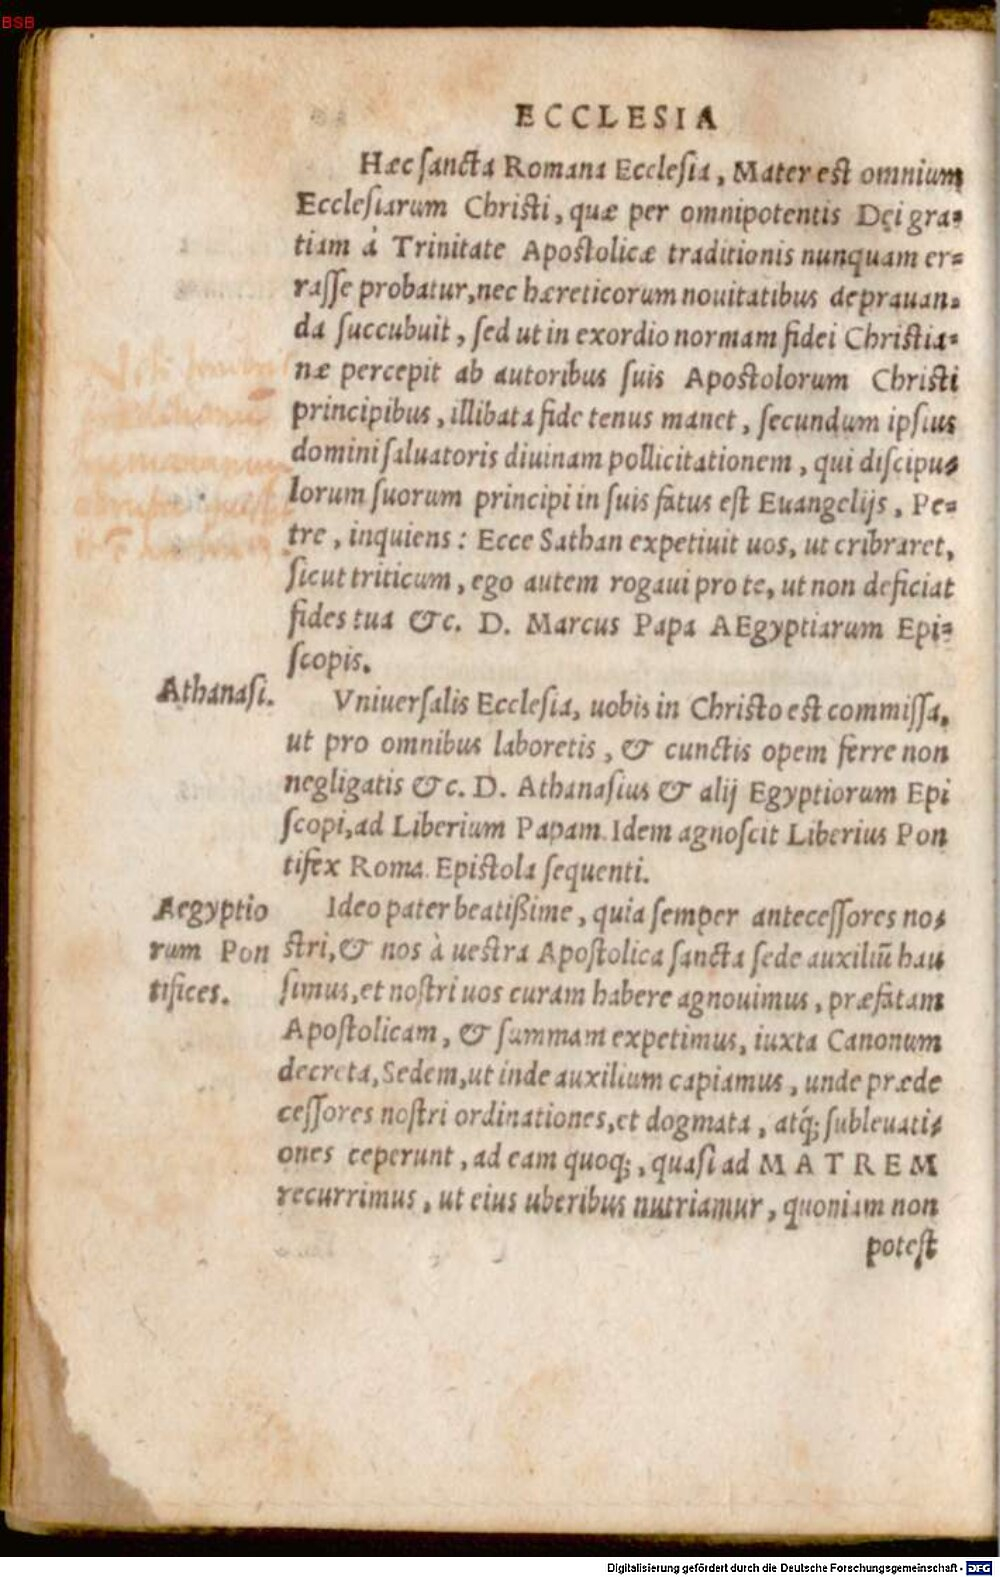 BSB
ECCLESIA
Hæc sancta Romana Ecclesia, Mater est omnium
Ecclesiarum Christi, quæ per omnipotentis Dei gra-
tiam à Trinitate Apostolicæ traditionis nunquam er-
rasse probatur, nec hæreticorum nouitatibus deprauan-
da succubuit, sed ut in exordio normam fidei Christia-
næ percepit ab autoribus suis Apostolorum Christi
principibus, illibata fide tenus manet, secundum ipsius
domini saluatoris diuinam pollicitationem, qui discipu-
lorum suorum principi in suis fatus est Euangelijs, Pe-
tre, inquiens: Ecce Sathan expetiuit uos, ut cribraret,
sicut triticum, ego autem rogaui pro te, ut non deficiat
fides tua &c. D. Marcus Papa AEgyptiarum Epi-
scopis.
Athanasi.
Vniuersalis Ecclesia, uobis in Christo est commissa,
ut pro omnibus laboretis, & cunctis opem ferre non
negligatis &c. D. Athanasius & alij Egyptiorum Epi
scopi, ad Liberium Papam. Idem agnoscit Liberius Pon
tifex Roma. Epistola sequenti.
Aegyptio
rum Pon
tifices.
Ideo pater beatißime, quia semper antecessores no-
stri, & nos à uestra Apostolica sancta sede auxiliũ hau
simus, et nostri uos curam habere agnouimus, præfatam
Apostolicam, & summam expetimus, iuxta Canonum
decreta, Sedem, ut inde auxilium capiamus, unde præde
cessores nostri ordinationes, et dogmata, atq́; subleuati-
ones ceperunt, ad eam quoq;, quasi ad MATREM
recurrimus, ut eius uberibus nutriamur, quoniam non
potest
Digitalisierung gefördert durch die Deutsche Forschungsgemeinschaft - DFG